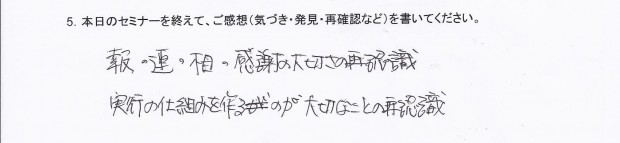 5. 本日のセミナーを終えて、ご感想（気づき・発見・再確認など）を書いてください。
報・連・相・感謝の大切さの再認識
実行の仕組みを作るのが大切なことの再認識